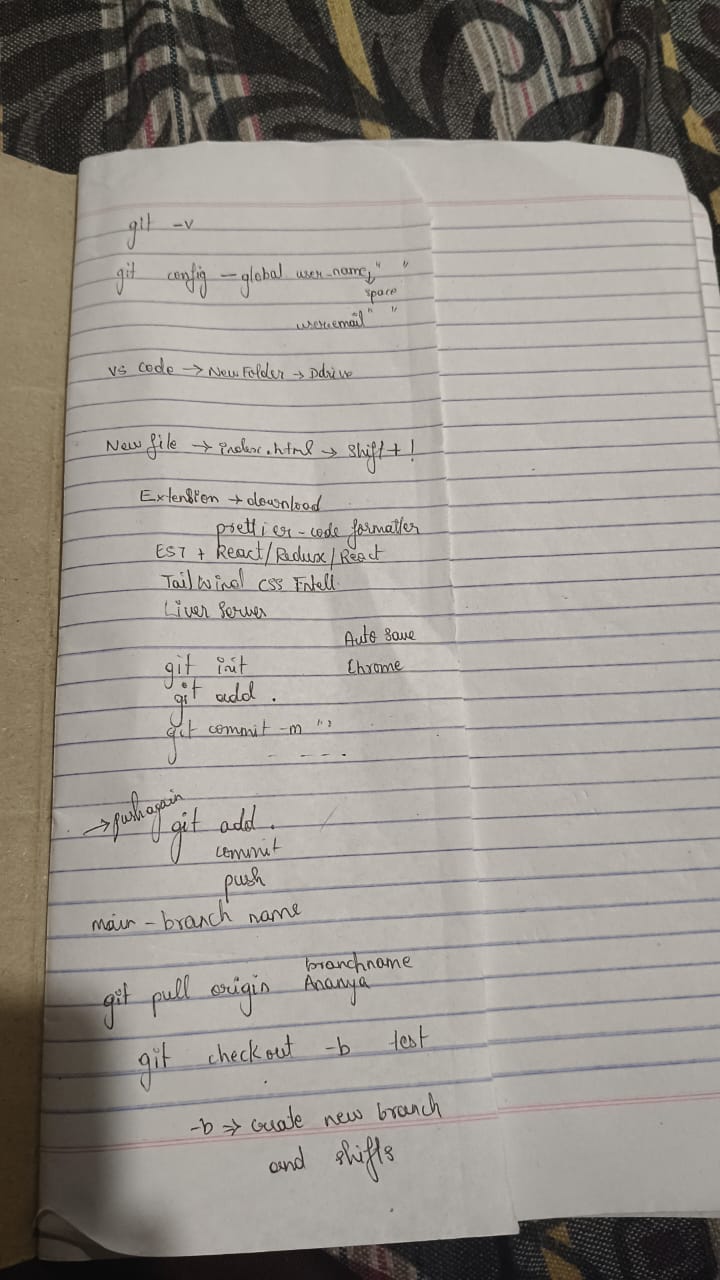 git -v
git config -global user-name, " "
space
user.email " "
vs code → New Folder → Ddrive
New file → index.html → shift+!
Extension → download
prettier - code formatter
ES7 + React/Redux/React
Tailwind CSS Entell.
Liver Server
Auto Save
git init
Chrome
git add .
git commit -m " "
- - - -
→ push again
git add .
commit
push
main - branch name
branchname
git pull origin Ananya
git checkout -b test
-b ⇒ create new branch
and shifts